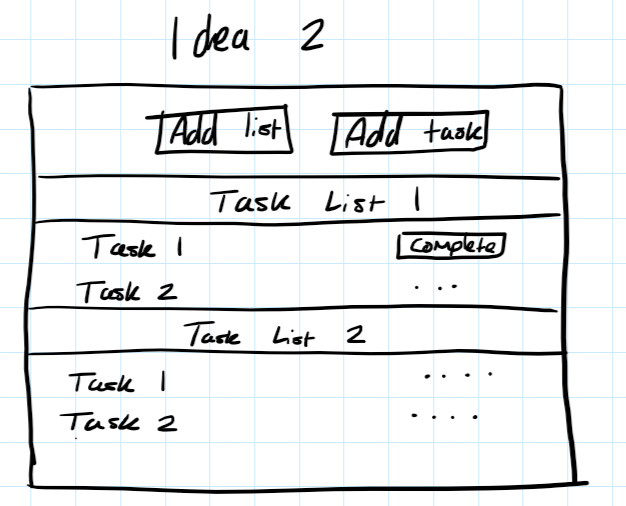 Idea 2
Add list Add task
Task List 1
Task 1 Complete
Task 2 ...
Task List 2
Task 1 ....
Task 2 ....